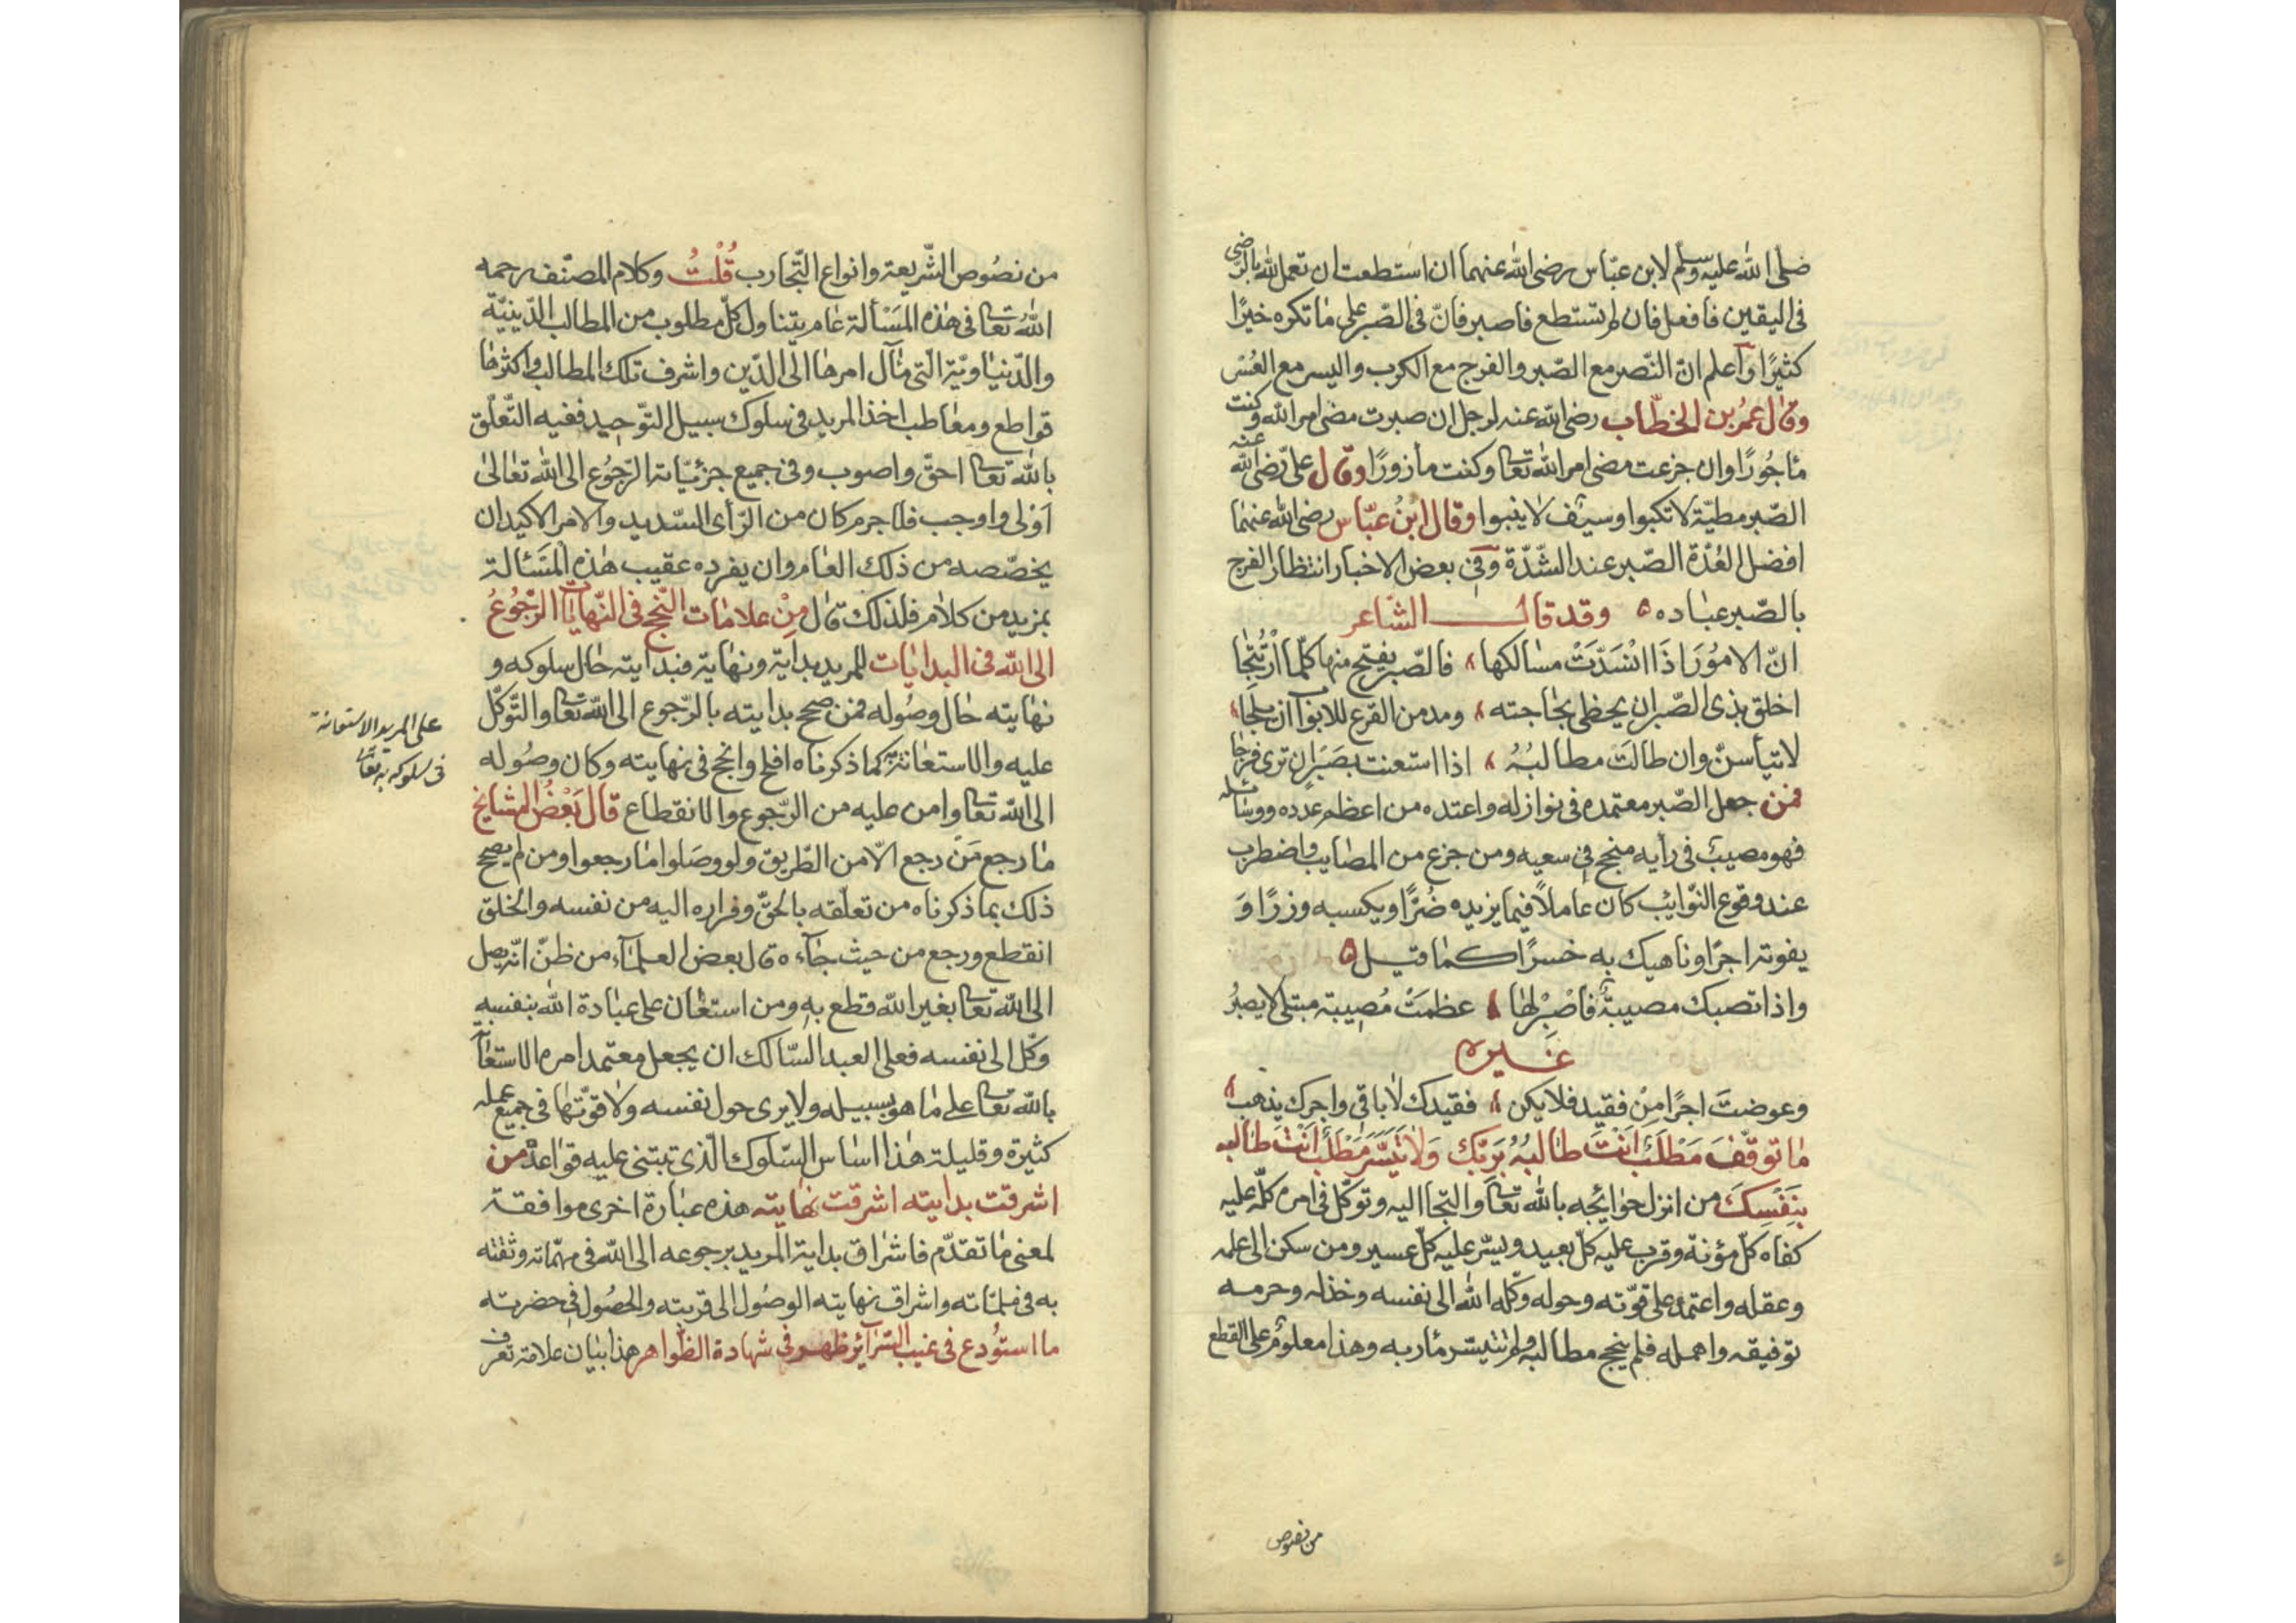 صلى الله عليه وسلم لابن عبّاس رضى الله عنهما ان استطعت ان تعمل لله بالرّضى
فى اليقين فافعل فان لم تستطع فاصبر فانّ فى الصّبر على ما تكره خيرًا
كثيرًا واعلم انّ النّصر مع الصّبر والفرج مع الكرب واليسر مع العُسْر
وقال عمر بن الخطّاب رضى الله عنه لرجل ان صبرت مضى امر الله وكنت
مأجُورًا وان جزعت مضى امر الله تعالى وكنت مأزورًا وقال علىّ رضى الله عنه
الصّبر مطيّة لا تكبوا وسيف لا ينبوا وقال ابنُ عبّاس رضى الله عنهما
افضل العُدّة الصّبر عند الشّدّة وفى بعض الاخبار انتظار الفرج
بالصّبر عباده ه وقد قال الشاعر
انّ الامُورَ اذَا انْسَدّتْ مسالكها ، فالصّبر يفتح منها كلّما ارْتُتِجَا
اخلق بذى الصّبر ان يحظى بحاجته ، ومدمن القرع للابواب ان يلجا
لا تيأسنّ وان طالَتْ مطالبُهُ ، اذا استعنت بصَبْرٍ ان ترى فرجا
فمن جعل الصّبر معتمده فى نوازله واعتده من اعظم عدده ووسائله
فهو مصيبٌ فى رأيه منجح فى سعيه ومن جزع من المصايب واضطرب
عند وقوع النّوايب كان عاملًا فيما يزيده ضُرًّا ويكسبه وزرًا وَ
يفوته اجرًا وناهيك به خسرًا كما قيل ه
واذا تصبك مصيبةٌ فاصْبِرْ لها ، عظمَتْ مُصيبة مبتلى لا يصبرُ
غيره
وعوضتَ اجرًا مِنْ فقيد فلا يكن ، فقيدك لا باقى واجرك يذهب ،
ما توقّفَ مَطْلَبٌ اَنْتَ طالبُهُ بِرَبِّكَ وَلا تَيَسَّرَ مَطْلَبٌ اَنْتَ طالبه
بِنَفْسِكَ من انزل حوايجه بالله تعالى والتجا اليه وتوكّل فى امره كلّه عليه
كفاه كلّ مؤنة وقرب عليه كلّ بعيد ويسّر عليه كلّ عسير ومن سكن الى علمه
وعقله واعتمد على قوّته وحوله وكّله الله الى نفسه وخذله وحرمه
توفيقه واهمله فلم ينجح مطالبه ولم تتيسّر مأربه وهذا معلوم على القطع
من نصوص
من نصُوص الشّريعة وانواع التّجارب قُلْتُ وكلام المصنّف رحمه
الله تعالى فى هذه المَسْألة عام يتناول كلّ مطلوب من المطالب الدّينيّة
والدّنياويّة الّتى مآل امرها الى الدّين واشرف تلك المطالب واكثرها
قواطع ومعاطب اخذ المريد فى سلوك سبيل التّوحيد ففيه التّعلّق
بالله تعالى احقّ واصوب وفى جميع جزئيّاته الرّجُوع الى الله تعالى
اوْلى واوجب فلا جرم كان من الرّأى السّديد والامر الاكيد ان
يخصّصه من ذلك العام وان يفرده عقيب هذه المَسْئالة
بمزيد من كلام فلذلك قال مِنْ علامات النّجح فى النّهايات الرّجُوعُ
الى الله فى البدايات للمريد بداية ونهاية فبدايته حال سلوكه و
نهايته حال وصُوله فمن صحح بدايته بالرّجوع الى الله تعالى والتّوكّل
عليه والاستعانة به كما ذكرناه افلح وانجح فى نهايته وكان وصُوله
الى الله تعالى وامن عليه من الرّجوع والانقطاع قال بَعْضُ المشايخ
ما رجع مَنْ رجع الّا من الطّريق ولو وصَلوا ما رجعوا ومن لم يصحح
ذلك بما ذكرناه من تعلّقه بالحقّ وفراره اليه من نفسه والخلق
انقطع ورجع من حيث جآء ه قال بعض العلمآء من ظنّ انّه يصل
الى الله تعالى بغير الله قطع بهِ ومن استعان على عبادة الله بنفسهِ
وكّل الى نفسه فعلى العبد السّالك ان يجعل معتمد امره الاستعا
بالله تعالى على ما هو بسبيله ولا يرى حول نفسه ولا قوّتها فى جميع عمله
كثيرة وقليلة هذا اساس السّلوك الّذى تبتنى عليه قواعده من
اشرقت بدايته اشرقت نهايته هذه عبارة اخرى موافقة
لمعنى ما تقدّم فاشراق بداية المريد برجوعه الى الله فى مهمّاته وثقته
به فى ملمّاته واشراق نهايته الوصُول الى قربته والحصُول فى حضرته
ما استُودع فى غيب السّرآئر ظهر فى شهادة الظّواهر هذا بيان علامة تعرف
على المريد الاستعانة
فى سلوكه به تعالى